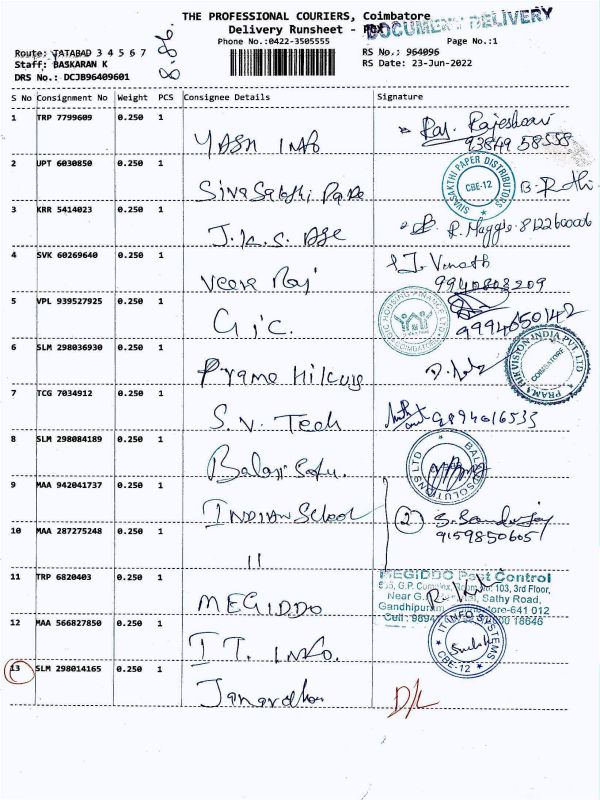 THE PROFESSIONAL COURIERS, Coimbatore
Delivery Runsheet - POX
DOCUMENT DELIVERY
Phone No.:0422-3505555
Page No.:1
Route: TATABAD 3 4 5 6 7
RS No.: 964096
Staff: BASKARAN K
RS Date: 23-Jun-2022
DRS No.: DCJB96409601
8.86.
S No Consignment No Weight PCS Consignee Details Signature
1 TRP 7799609 0.250 1 YASH INFO Raj. Rajeshwari
93849 58588
2 UPT 6030850 0.250 1 Siva Sakthi Pape
SIVASAKTHI PAPER DISTRIBUTORS
CBE-12
3 KRR 5414023 0.250 1 J.K.S. R. Maggie 8122600006
4 SVK 60269640 0.250 1 Veera Raj J. Vinoth
9940803209
5 VPL 939527925 0.250 1 GIC.
HOUSING FINANCE LTD
COIMBATORE
9994650142
6 SLM 298036930 0.250 1
PRAMA HIKVISION INDIA PVT. LTD
COIMBATORE
7 TCG 7034912 0.250 1 S.V. Tech 9894016533
8 SLM 298084189 0.250 1 Balaji Solu.
SOLUTIONS LTD
9 MAA 942041737 0.250 1 INDIAN School (2)
9159850605
10 MAA 287275248 0.250 1 11
11 TRP 6820403 0.250 1 MEGIDDO
MEGIDDO Pest Control
G.P. 103, 3rd Floor,
Near Sathy Road,
Gandhipuram -641 012
Cell : 9894 18646
12 MAA 566827850 0.250 1 IT. INFO.
IT INFO SYSTEMS
CBE-12
13 SLM 298014165 0.250 1 Janardhan D/L